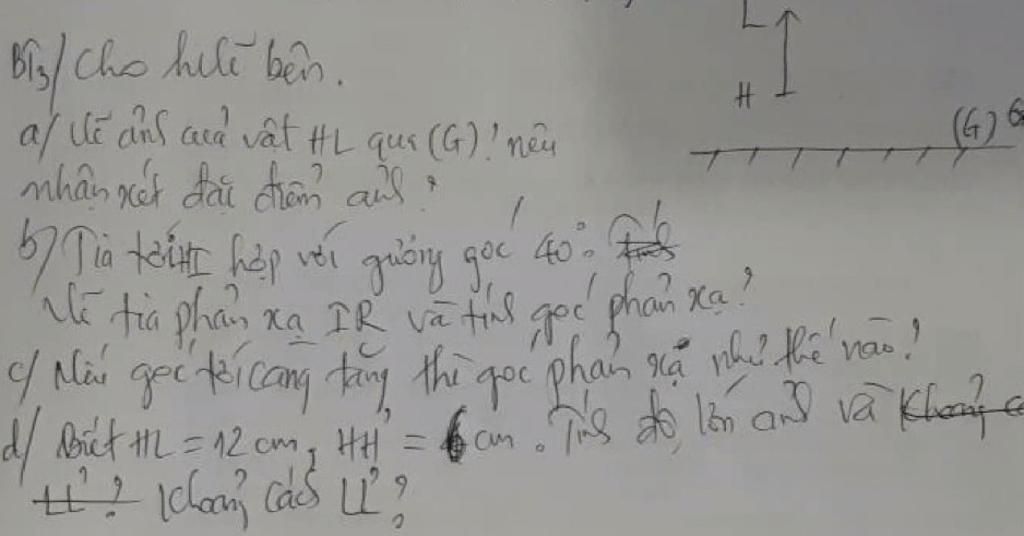 BT3/ Cho hvẽ bên.
L
H
(G)
a/ Vẽ ảnh của vật HL qua (G)! nêu
nhận xét đặc điểm ảnh?
b/ Tia tới HI hợp với gương góc 40°.
Vẽ tia phản xạ IR và tính góc phản xạ?
c/ Nếu góc tới càng tăng thì góc phản xạ như thế nào?
d/ Biết HL = 12 cm, HH' = 6 cm. Tính độ lớn ảnh và
Khoảng cách LL'?